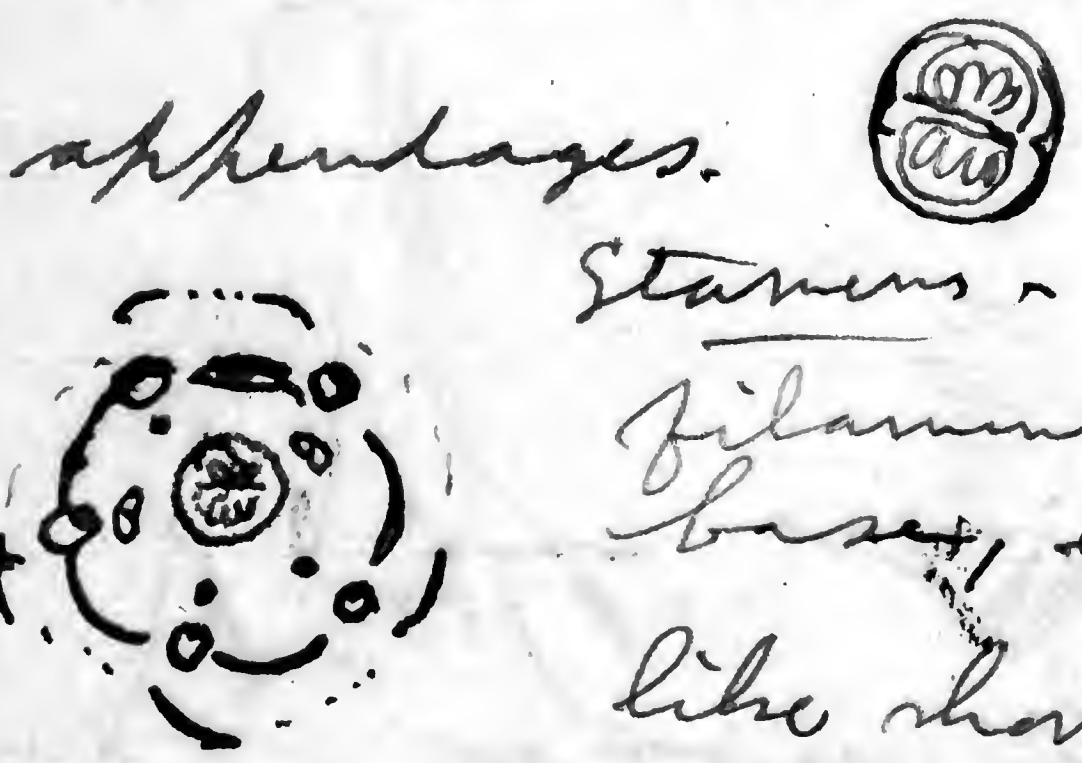 appendages.
Stamens -
filamen
base,
like shor